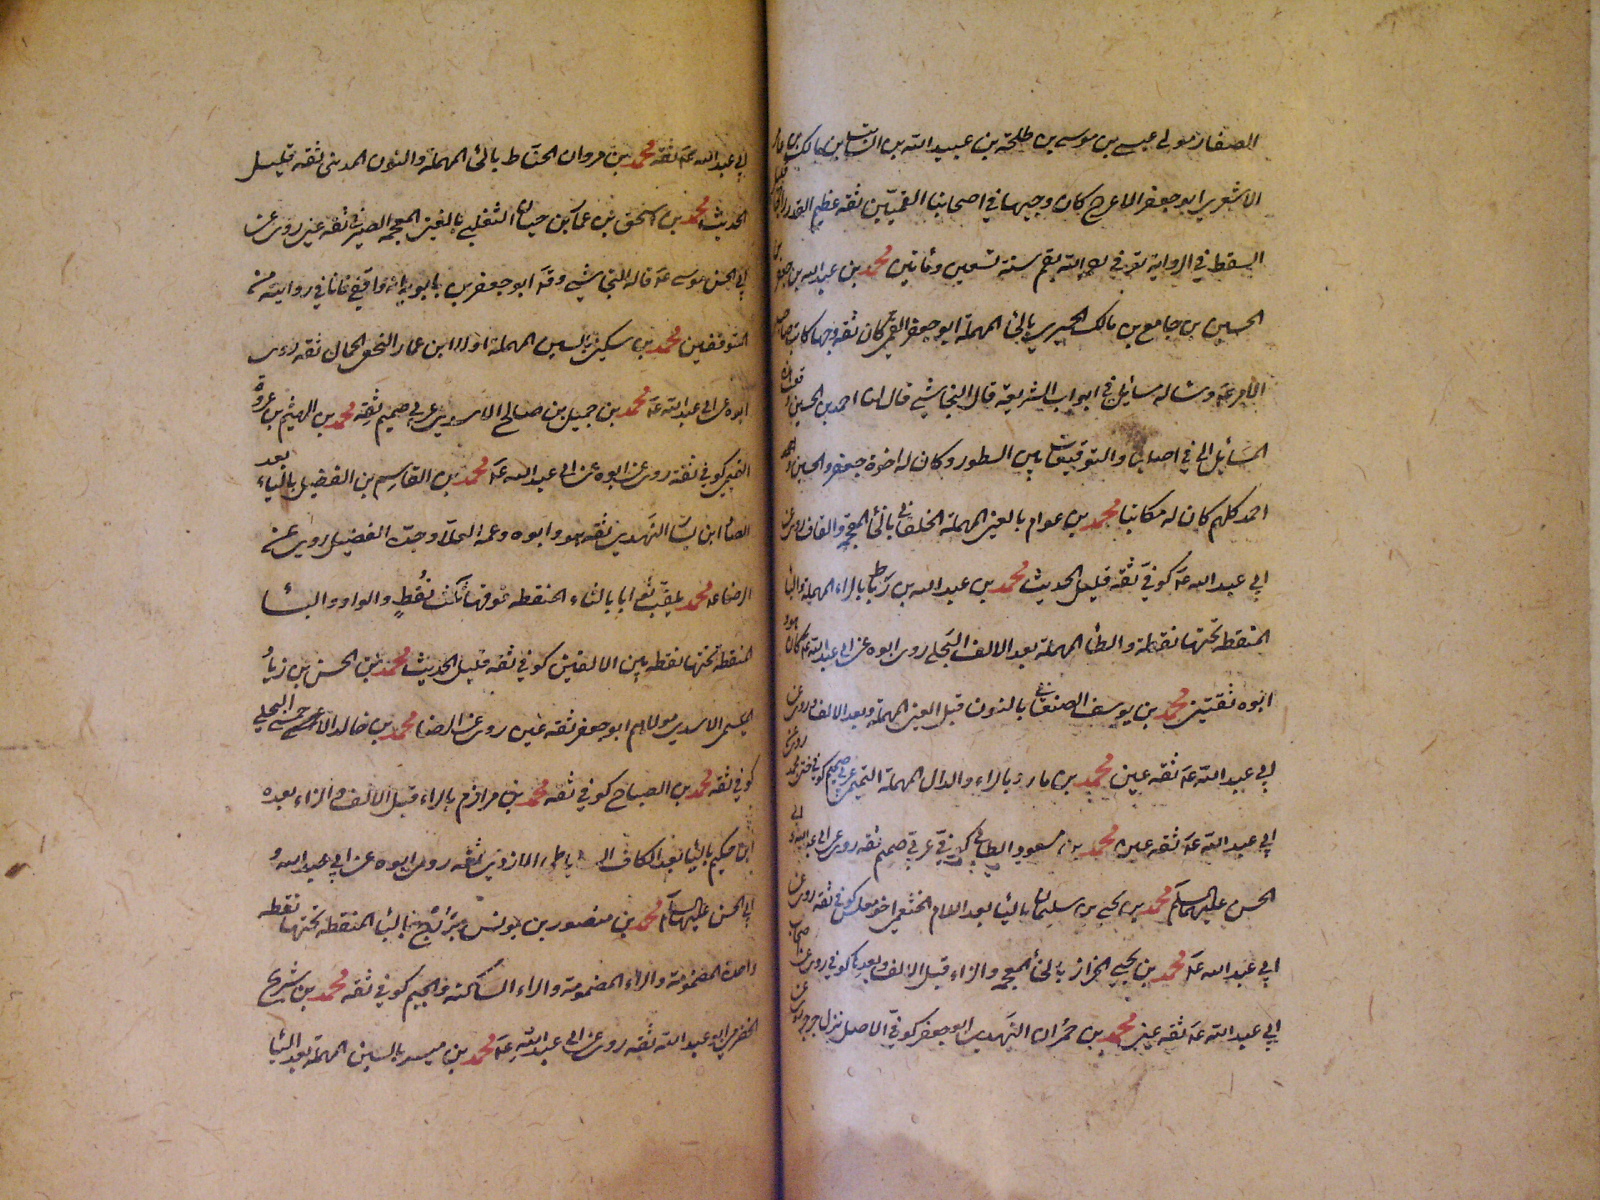 الصفار مولى عيسى بن موسى بن طلحة بن عبيد الله بن السائب بن مالك بن عامر
الاشعري ابو جعفر الاعرج كان وجيها في اصحابنا القميين ثقه عظيم القدر قليل
السقط في الرواية توفي رحمه الله بقم سنة تسعين ومائتين محمد بن عبد الله بن جعفر بن
الحسين بن جامع بن مالك الحميري بالحاء المهملة ابو جعفر القمي كان ثقه وجها كاتب صاحب
الامر عه وساله مسائل في ابواب الشريعة قال النجاشي قال لنا احمد بن الحسين
المسايل الي في اصلها والتوقيعات بين السطور وكان له اخوة جعفر والحسين
احمد كلهم كان له مكاتبا محمد بن عوام بالعين المهملة الخلقاني بالخاء المعجمه والقاف روى عن
ابي عبد الله عه كوفي ثقة قليل الحديث محمد بن عبد الله بن رباط بالراء المهملة والبا
المنقطه تحتها نقطة والطاء المهملة بعد الالف البجلي روى ابوه عن ابي عبد الله عه كان هو
ابوه ثقتين محمد بن يوسف الصنعاني بالنون قبل العين المهملة وبعد الالف روى عن
ابي عبد الله عه ثقه عين محمد بن مارد بالراء والدال المهملة التميمي عربي صميم كوفي ختن محمد روى عن
ابي عبد الله عه ثقه عين محمد بن مسعود الطائي كوفي عربي صميم ثقه روى عن ابي عبد الله و ابي
الحسن عليهما السلام محمد بن يحيى بن سليمان بالياء بعد اللام الخثعمي اخو مغلس كوفي ثقه روى عن
ابي عبد الله عه محمد بن يحيى الخزاز بالخاء المعجمه والزاء قبل الالف وبعدها كوفي روى عن اصحاب
ابي عبد الله عه ثقه عين محمد بن حمران النهدي ابو جعفر كوفي الاصل نزل جرجرايا
ابي عبد الله عه ثقه محمد بن مروان الحناط بالحاء المهملة والنون المدني ثقه قليل
الحديث محمد بن اسحق بن عمار بن حيان التغلبي بالغين المعجمه الصيرفي ثقه عين روى عن
ابي الحسن موسى عه قاله النجاشي وقال ابو جعفر بن بابويه انه واقفي فانا في روايته من
المتوقفين محمد بن سكين بالسين المهملة اولا ابن عمار النخعي الجمال ثقه روى
ابوه عن ابي عبد الله عه محمد بن جميل بن صالح الاسدي عربي صميم ثقه محمد بن الهيثم بن عروة
التميمي كوفي ثقة روى عن ابوه عن ابي عبد الله عه محمد بن القاسم بن الفضيل بالياء بعد
الضاد ابن يسار النهدي ثقه هو وابوه وعمه العلا وجده الفضيل روى عن
الرضا عه محمد يلقب ثوابا بالثاء المنقطه فوقها ثلث نُقَطٍ والواو والباء
المنقطة تحتها نقطه بين الالفين كوفي ثقه قليل الحديث محمد بن الحسن بن زياد
الميثمي الاسدي مولاهم ابو جعفر ثقه عين روى عن الرضا محمد بن خالد الاحمسي البجلي
كوفي ثقه محمد بن الصباح كوفي ثقه محمد بن مرازم بالراء قبل الالف والزاء بعده
ابن حكيم بالياء بعد الكاف الساباطي الازدي ثقه روى ابوه عن ابي عبد الله و
ابي الحسن عليهما السلام محمد بن منصور بن يونس بزرج بالباء المنقطه تحتها نقطه
واحدة المضمومة والزاء المضمومة والراء الساكنه والجيم كوفي ثقه محمد بن شريح
الحضرمي ابو عبد الله ثقه روى عن ابي عبد الله عه محمد بن ميسر بالسين المهملة بعد الياء